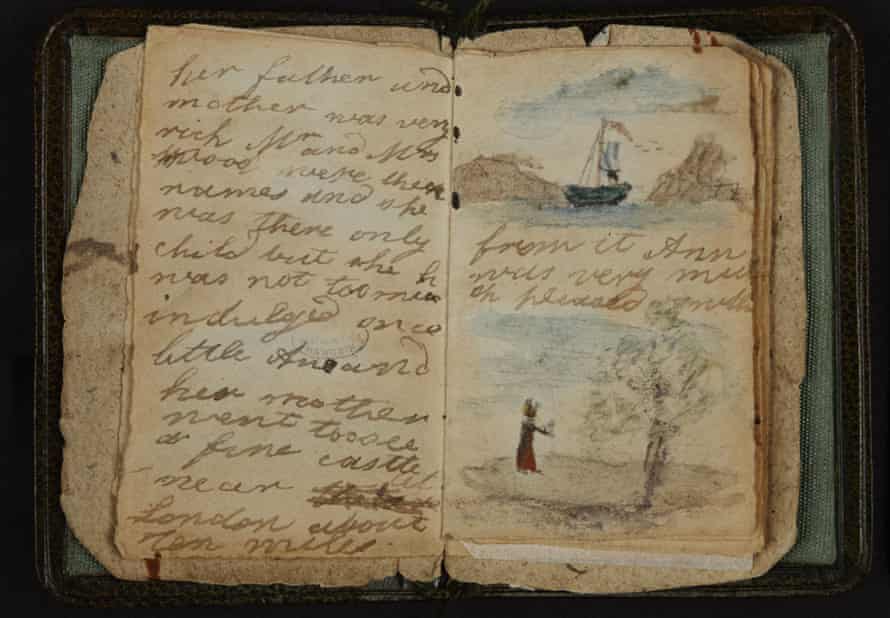 her father and
mother was very
rich Mr and Mrs
Wood were their
names and she
was there only
child but she
was not too muc
indulged once
little Ane and
her mother
went to see
a fine castle
near
London about
ten miles.
from it Ann
was very mu
ch pleased with